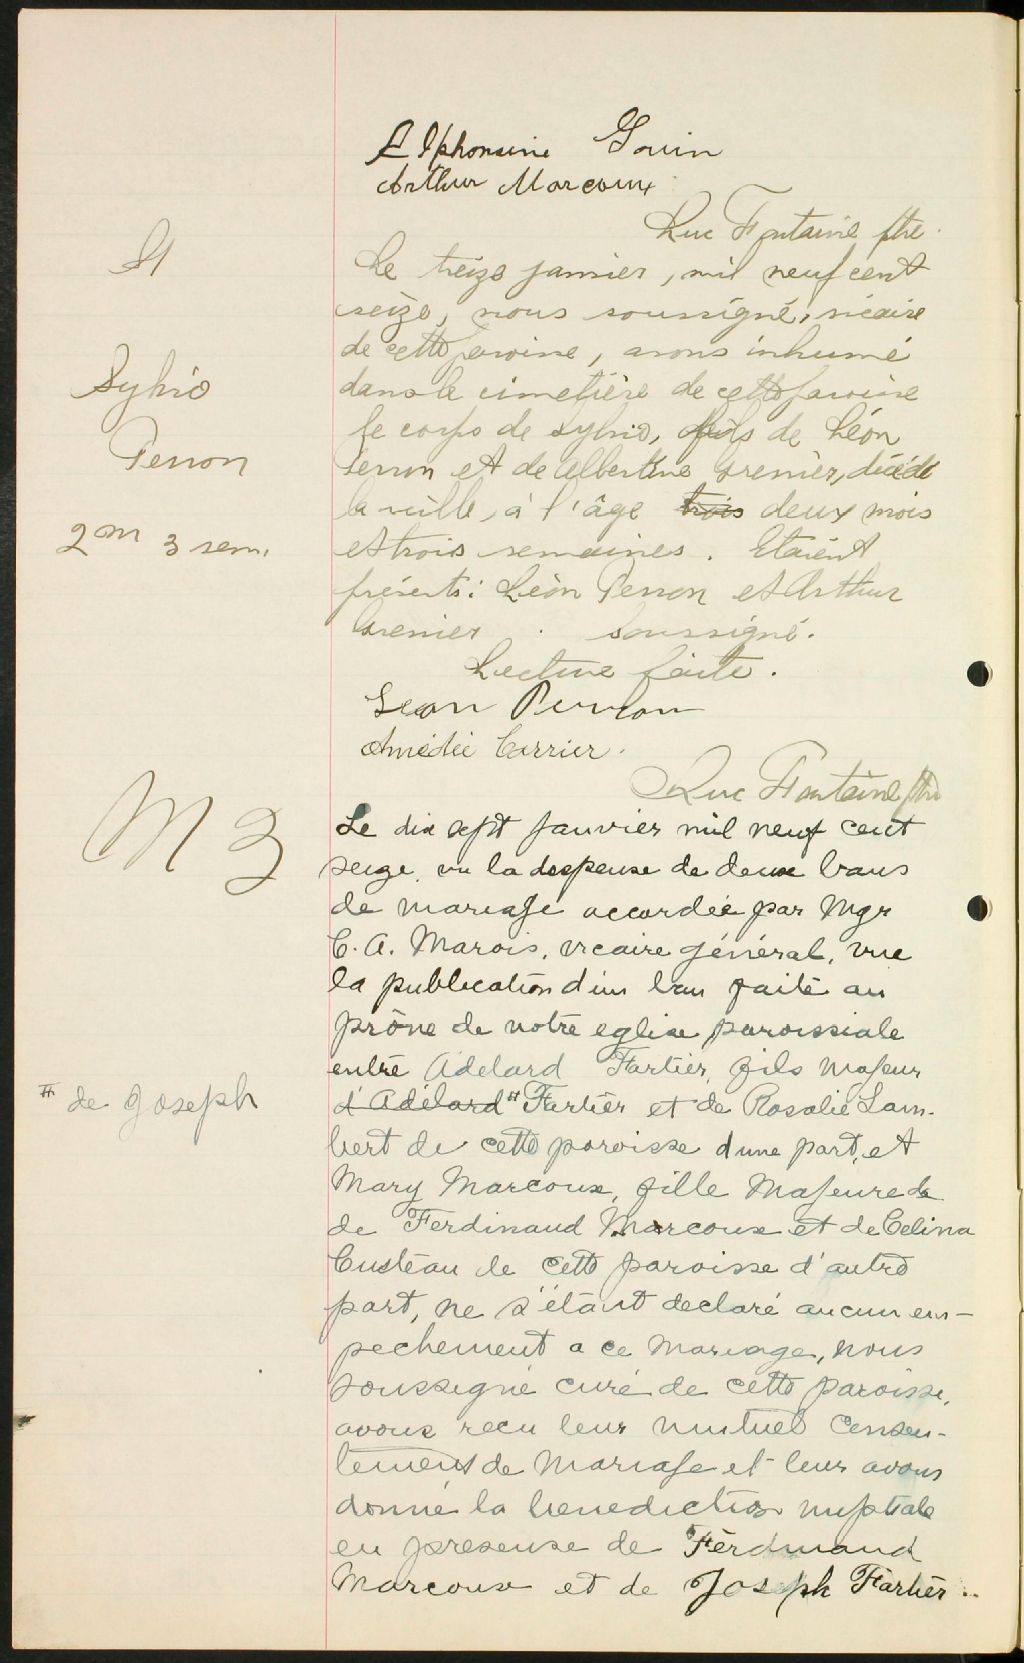 Alphonsine Gouin
Arthur Marcoux
Luc Fontaine ptre.
Le treize janvier, mil neuf cent
seize, nous soussigné, vicaire
de cette paroisse, avons inhumé
dans le cimetière de cette paroisse
le corps de Sylvio, fils de Léon
Perron et de Albertine Grenier, décédé
la veille, à l'âge trois deux mois
et trois semaines. Etaient
présents: Léon Perron et Arthur
Grenier. soussigné.
Lecture faite.
Leon Perron
Amédée Carrier.
Luc Fontaine ptre
Sylvio
Perron
2m 3 sem.
M 3
Le dix sept janvier mil neuf cent
seize, vu la dispense de deux bans
de mariage accordée par Mgr
C. A. Marois, vicaire général, vue
la publication d'un ban faite au
prône de notre eglise paroissiale
entre Adelard Fortier, fils majeur
d'Adélard # Fortier et de Rosalie Lam-
bert de cette paroisse d'une part, et
Mary Marcoux, fille Majeure de
de Ferdinand Marcoux et de Celina
Custeau de cette paroisse d'autre
part, ne s'étant declaré aucun em-
pechement a ce Mariage, nous
soussigné curé de cette paroisse,
avons recu leur mutuel consen-
tement de Mariage et leur avons
donné la benediction nuptiale
en presence de Ferdinand
Marcoux et de Joseph Fortier..
# de Joseph